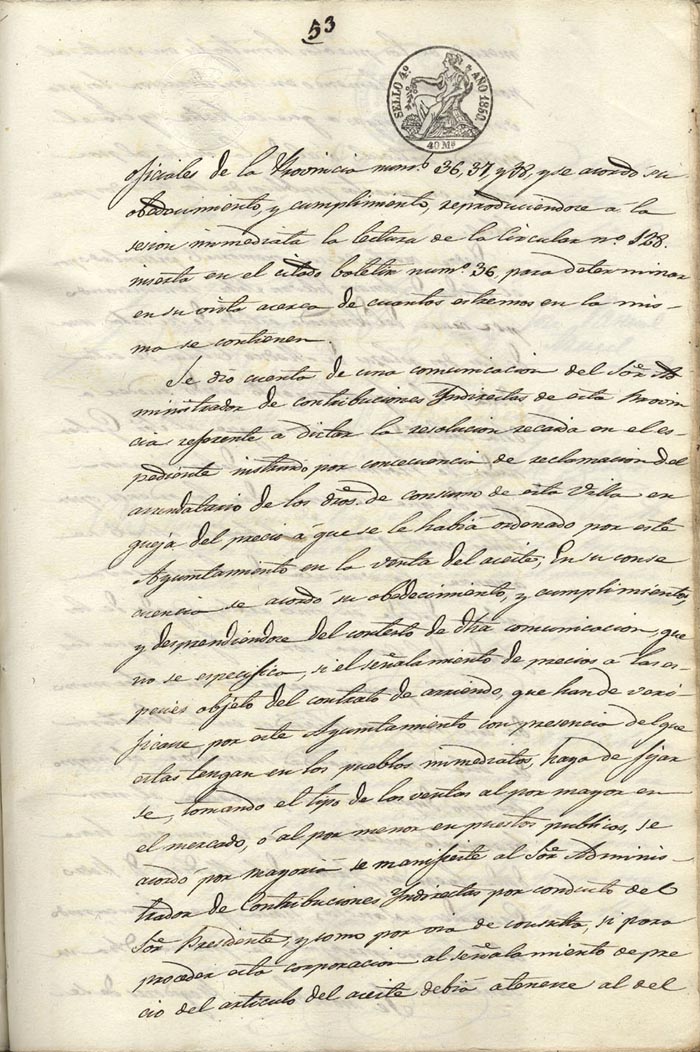 53
SELLO 4º AÑO 1850.
40 Mˢ
oficiales de la Provincia numˢ 36, 37, y 38, y se acordó su
obedecimiento, y cumplimiento, reproduciendose á la
sesion inmediata la lectura de la Circular nº 128.
inserta en el citado boletin numº 36, para determinar
en su vista acerca de cuantos estremos en la mis-
ma se contienen.
Se dio cuenta de una comunicacion del Sor. Ad
ministrador de contribuciones Yndirectas de esta Provin
cia referente a dictar la resolucion recaida en el es-
pediente instruido por concecuencia de reclamacion del
arrendatario de los dros. de consumo de esta Villa en
queja del precio á que se le habia ordenado por este
Ayuntamiento en la venta del aceite; En su conse
cuencia se acordó su obedecimiento, y cumplimiento,
y desprendiendose del contesto de dha comunicacion, que
no se especifica, si el señalamiento de precios á las es-
pecies objeto del contrato de arriendo, que han de veri-
ficarse por este Ayuntamiento con presencia del que
estas tengan en los pueblos inmediatos, haya de fijar
se, tomando el tipo de las ventas al por mayor en
el mercado, ó al por menor en puestos publicos, se
acordó por mayoria se manifieste al Sor. Adminis-
trador de Contribuciones Yndirectas por conducto del
Sor. Presidente, y como por via de consulta, si para
proceder esta corporacion al señalamiento de pre
cio del articulo del aceite debiá atenerse al del